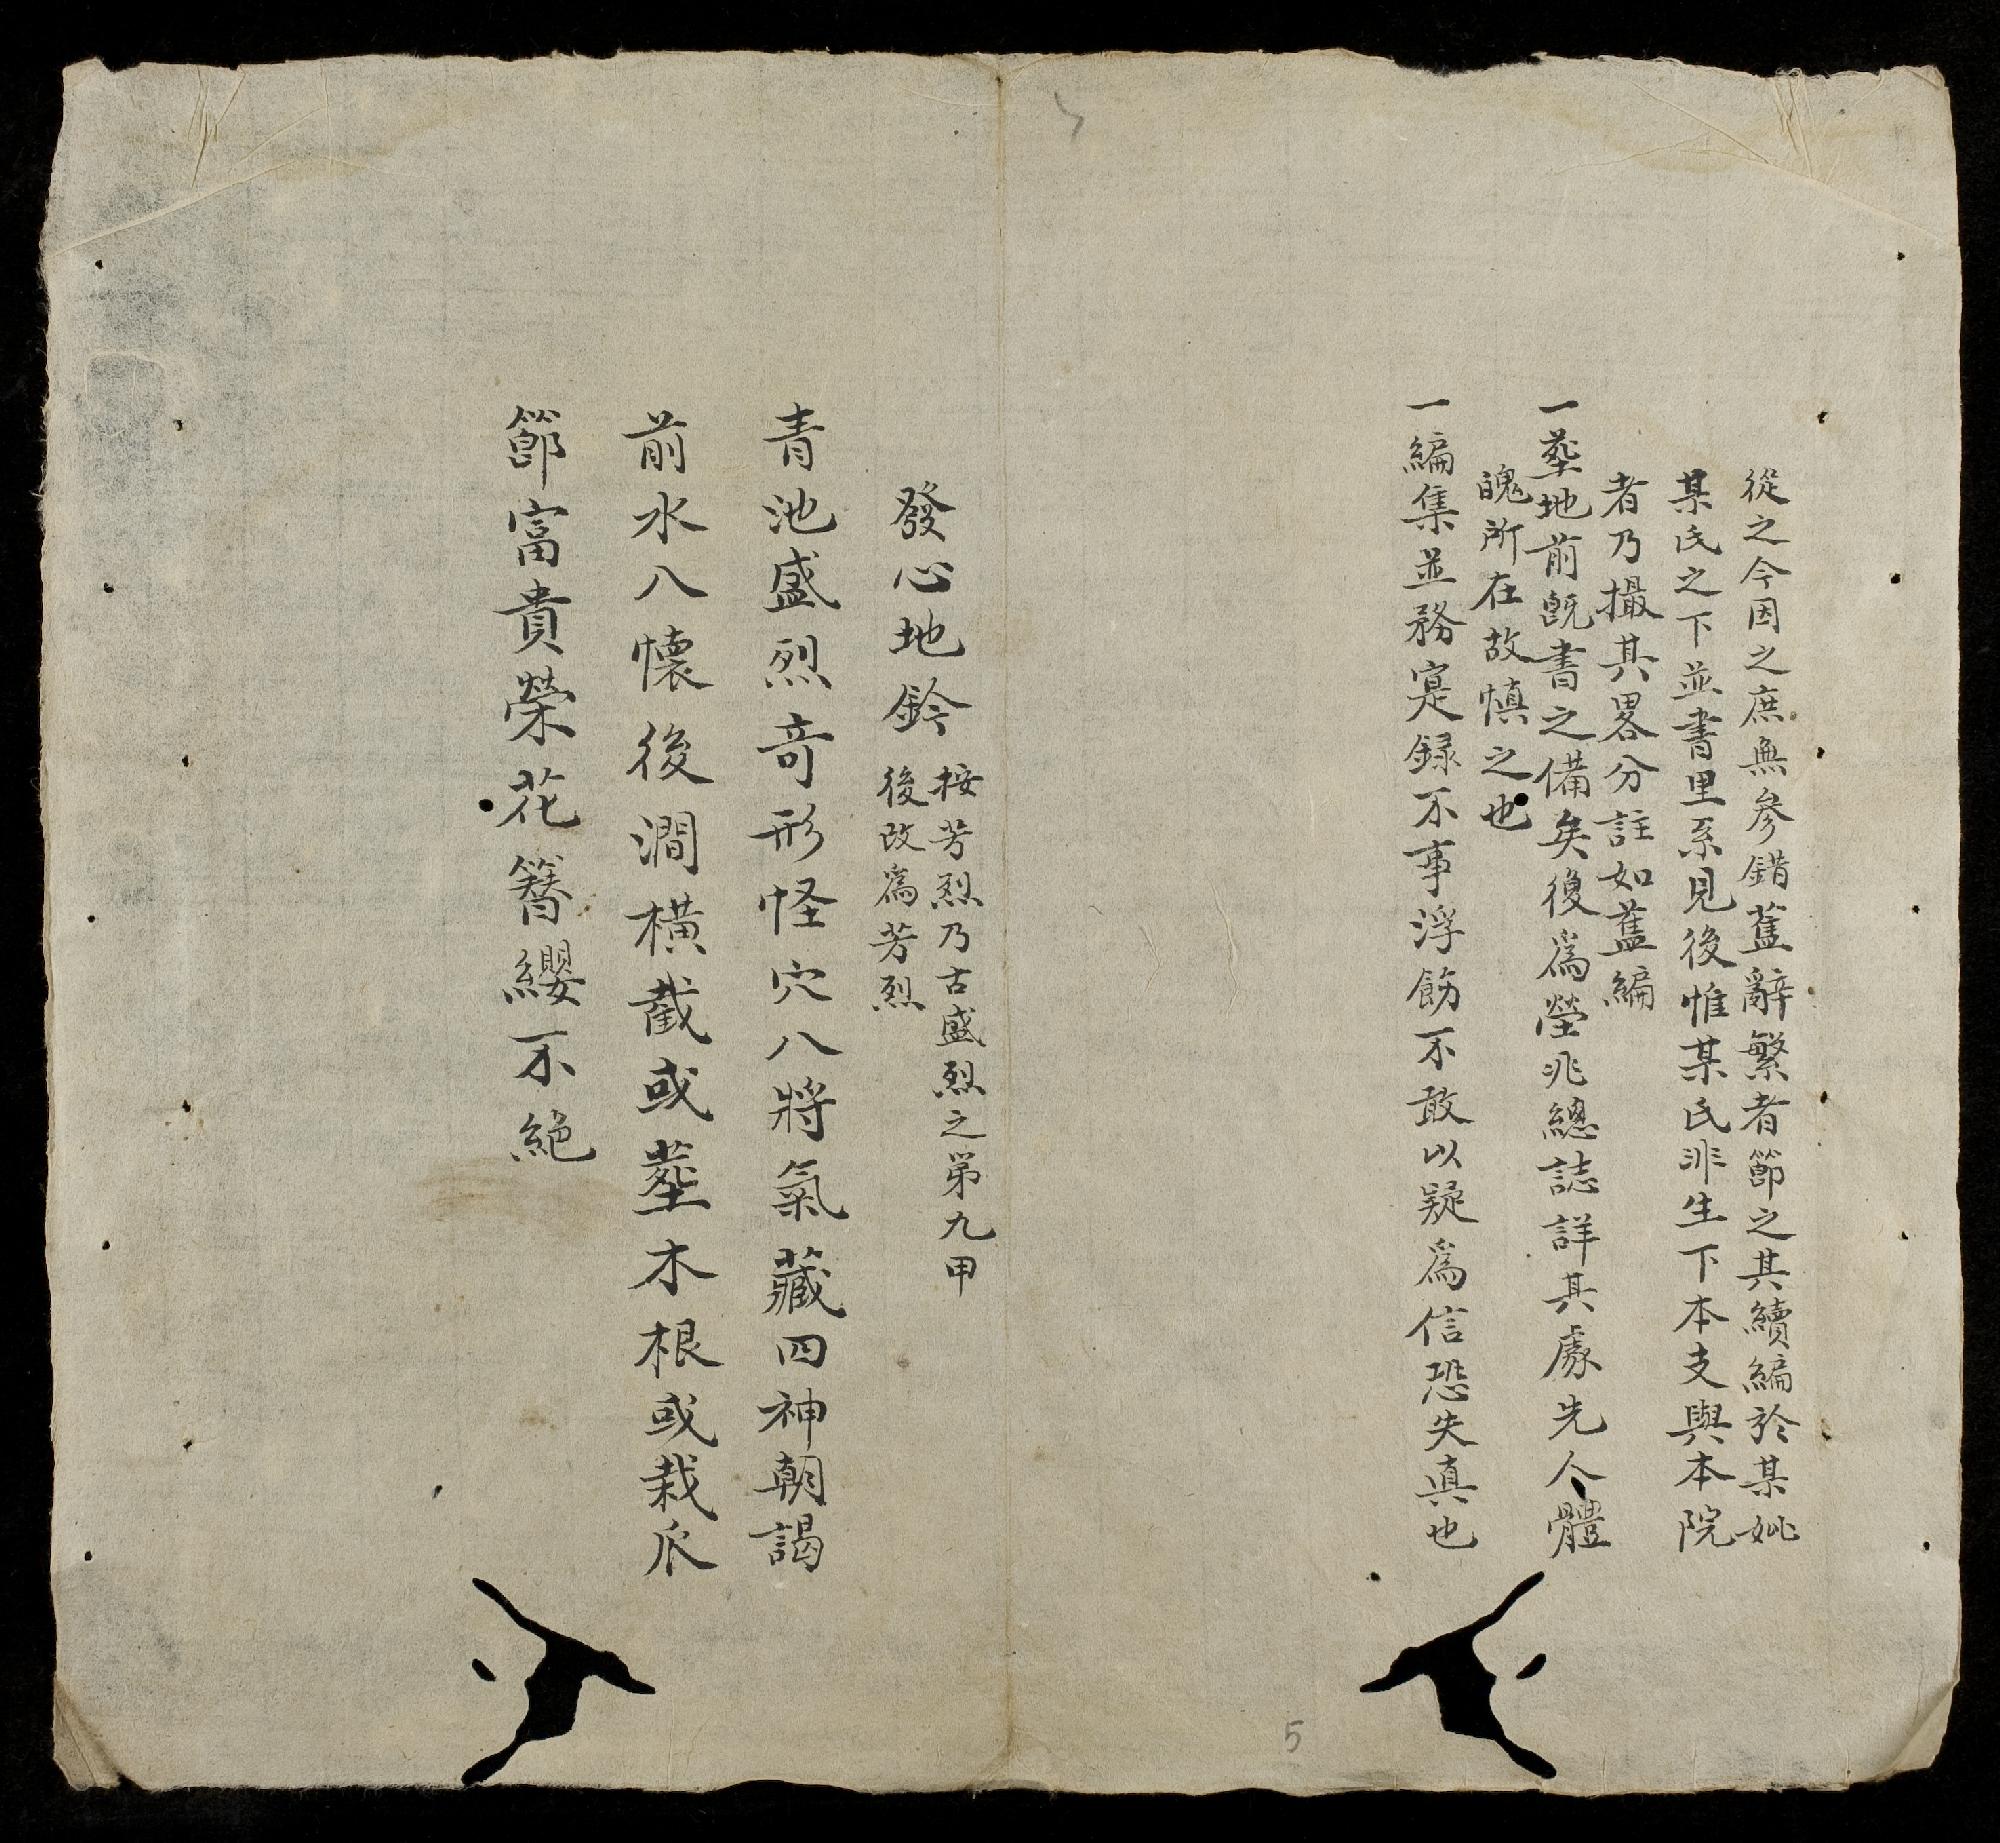 從之今因之庶無參錯舊辭繁者節之其續編於某妣
某氏之下並書里系見後惟某氏非生下本支與本院
者乃撮其畧分註如舊編
一塟地前旣書之備矣復爲塋兆總誌詳其處先人體
魄所在故慎之也
一編集並務寔録不事浮飭不敢以疑爲信恐失真也
發心地鈐
按芳烈乃古盛烈之第九甲
後改爲芳烈
青池盛烈竒形怪穴八將氣藏四神朝謁
前水八懷後澗横截或塟木根或栽瓜
節富貴榮花簪纓不絕
5